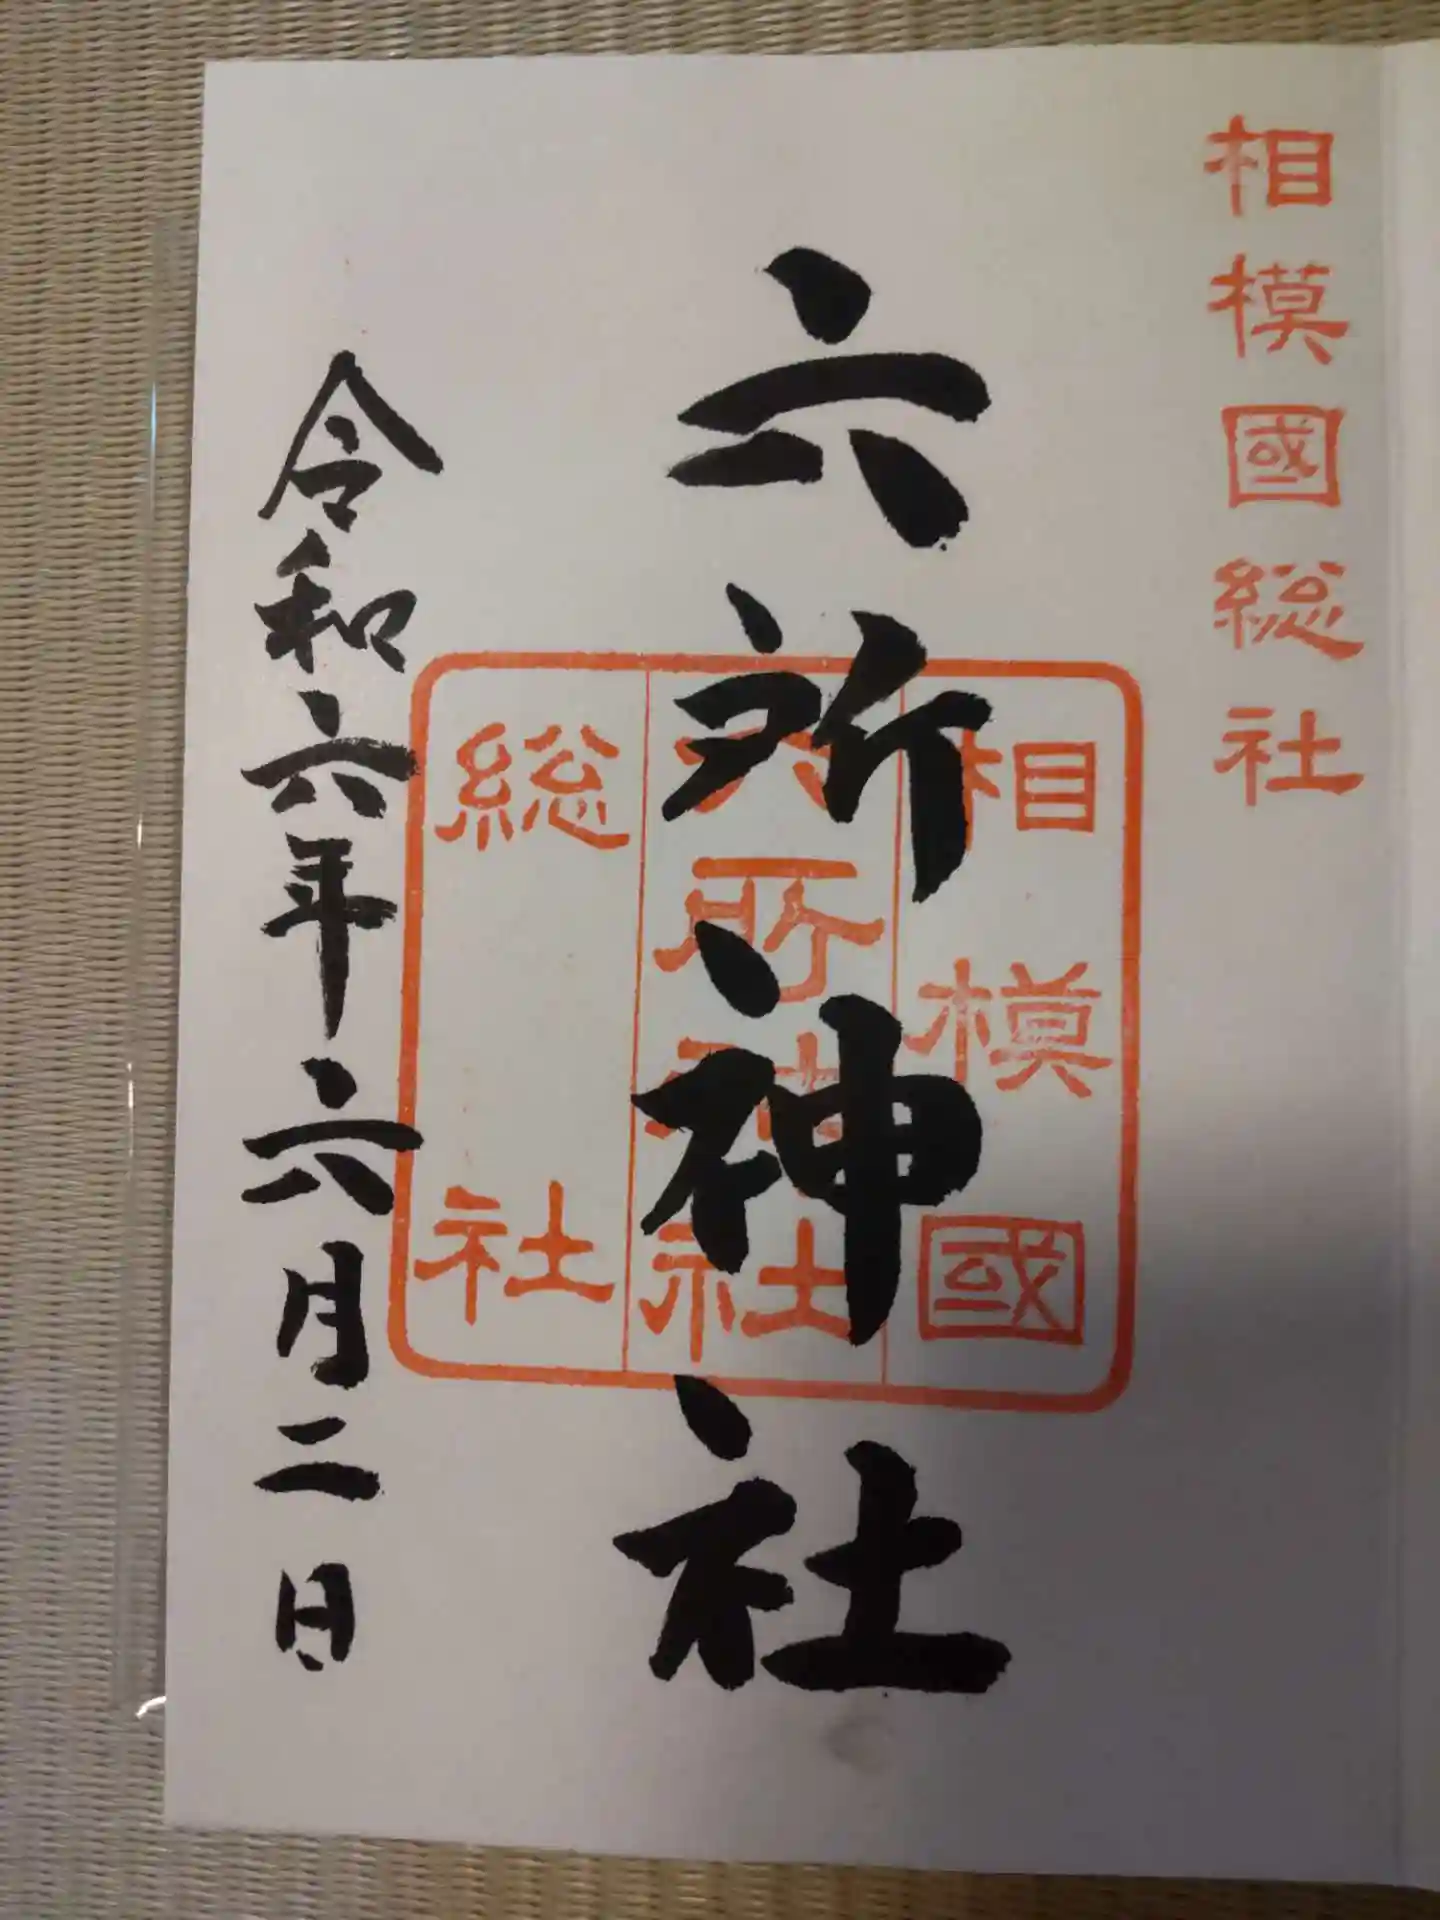 相模國総社
六所神社
相模國
六所神社
総社
令和六年六月二日